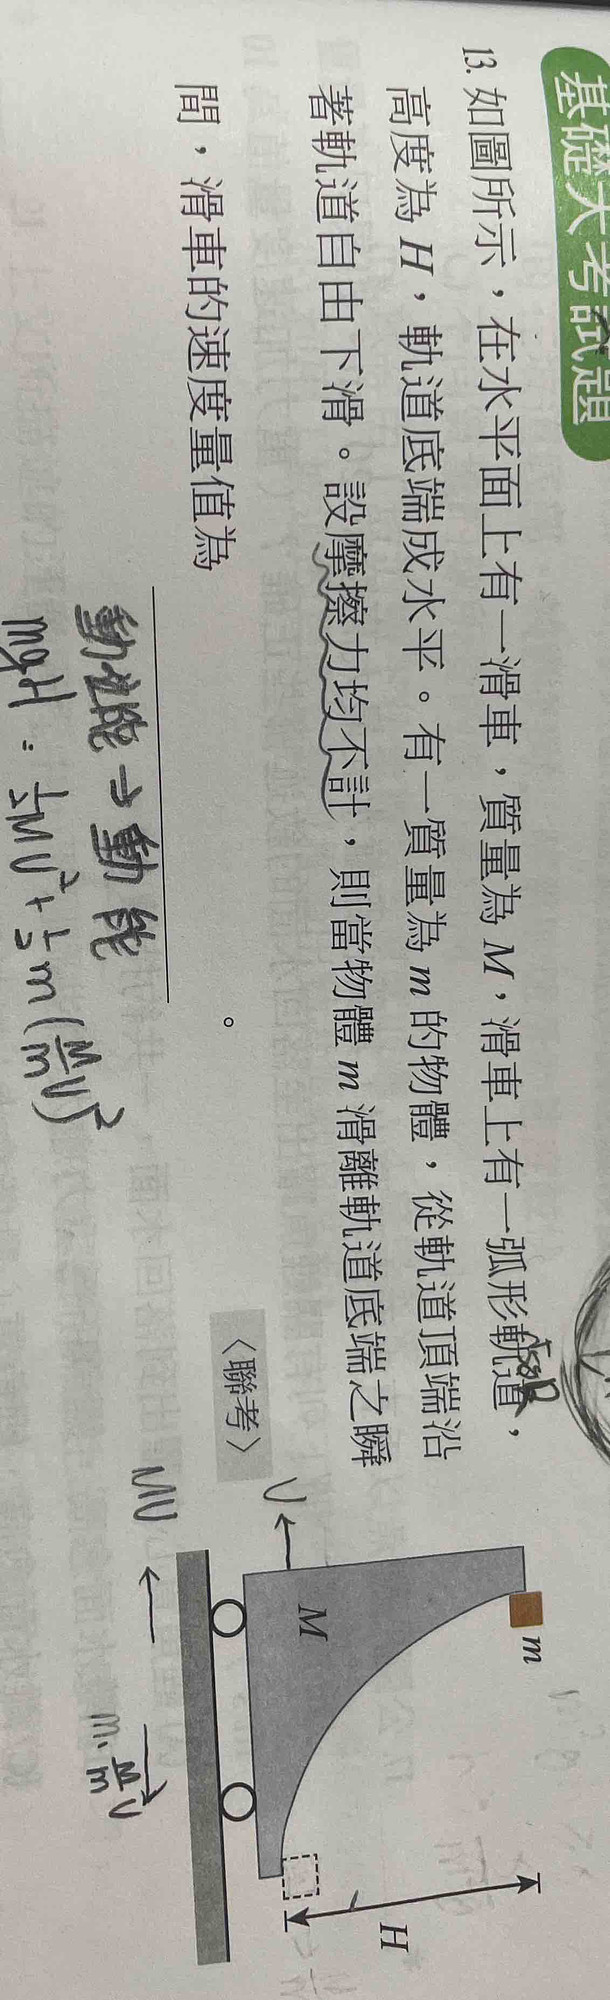 基礎大考試題
13. 如圖所示,在水平面上有一滑車,質量為 M,滑車上有一弧形軌道,
高度為 H,軌道底端成水平。有一質量為 m 的物體,從軌道頂端沿
著軌道自由下滑。設摩擦力均不計,則當物體 m 滑離軌道底端之瞬
間,滑車的速度量值為 。
〈聯考〉
m
M
H
V
MV
m · M/m V
→ 動能
mgH = 1/2 MV² + 1/2 m (M/m V)²